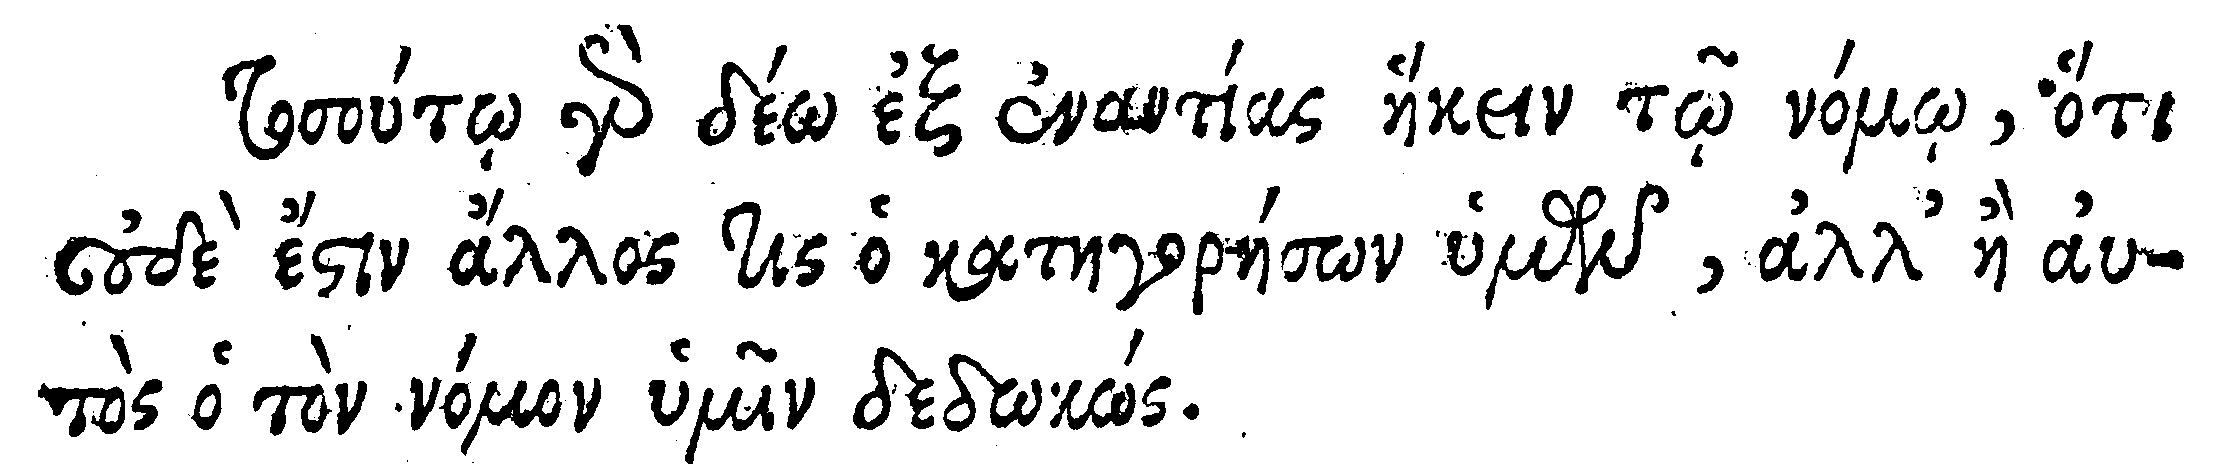 Τοσούτῳ γὰρ δέω ἐξ ἐναντίας ἥκειν τῷ νόμῳ, ὅτι
οὐδὲ ἔστιν ἄλλος τις ὁ κατηγορήσων ὑμῶν, ἀλλ' ἢ αὐ-
τὸς ὁ τὸν νόμον ὑμῖν δεδωκώς.